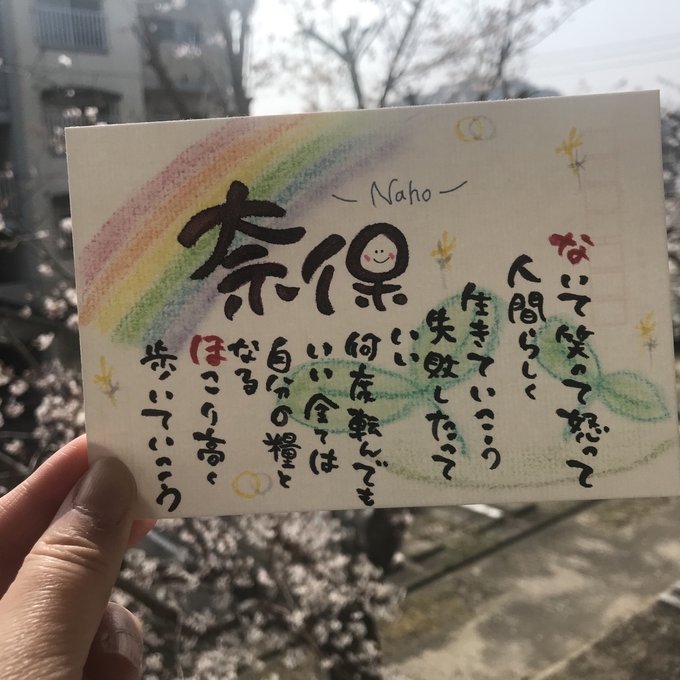 奈保
— Naho —
ないて笑って怒って
人間らしく
生きていこう
失敗したって
いい
何度転んでも
いい全ては
自分の糧と
なる
ほこり高く
歩いていこう